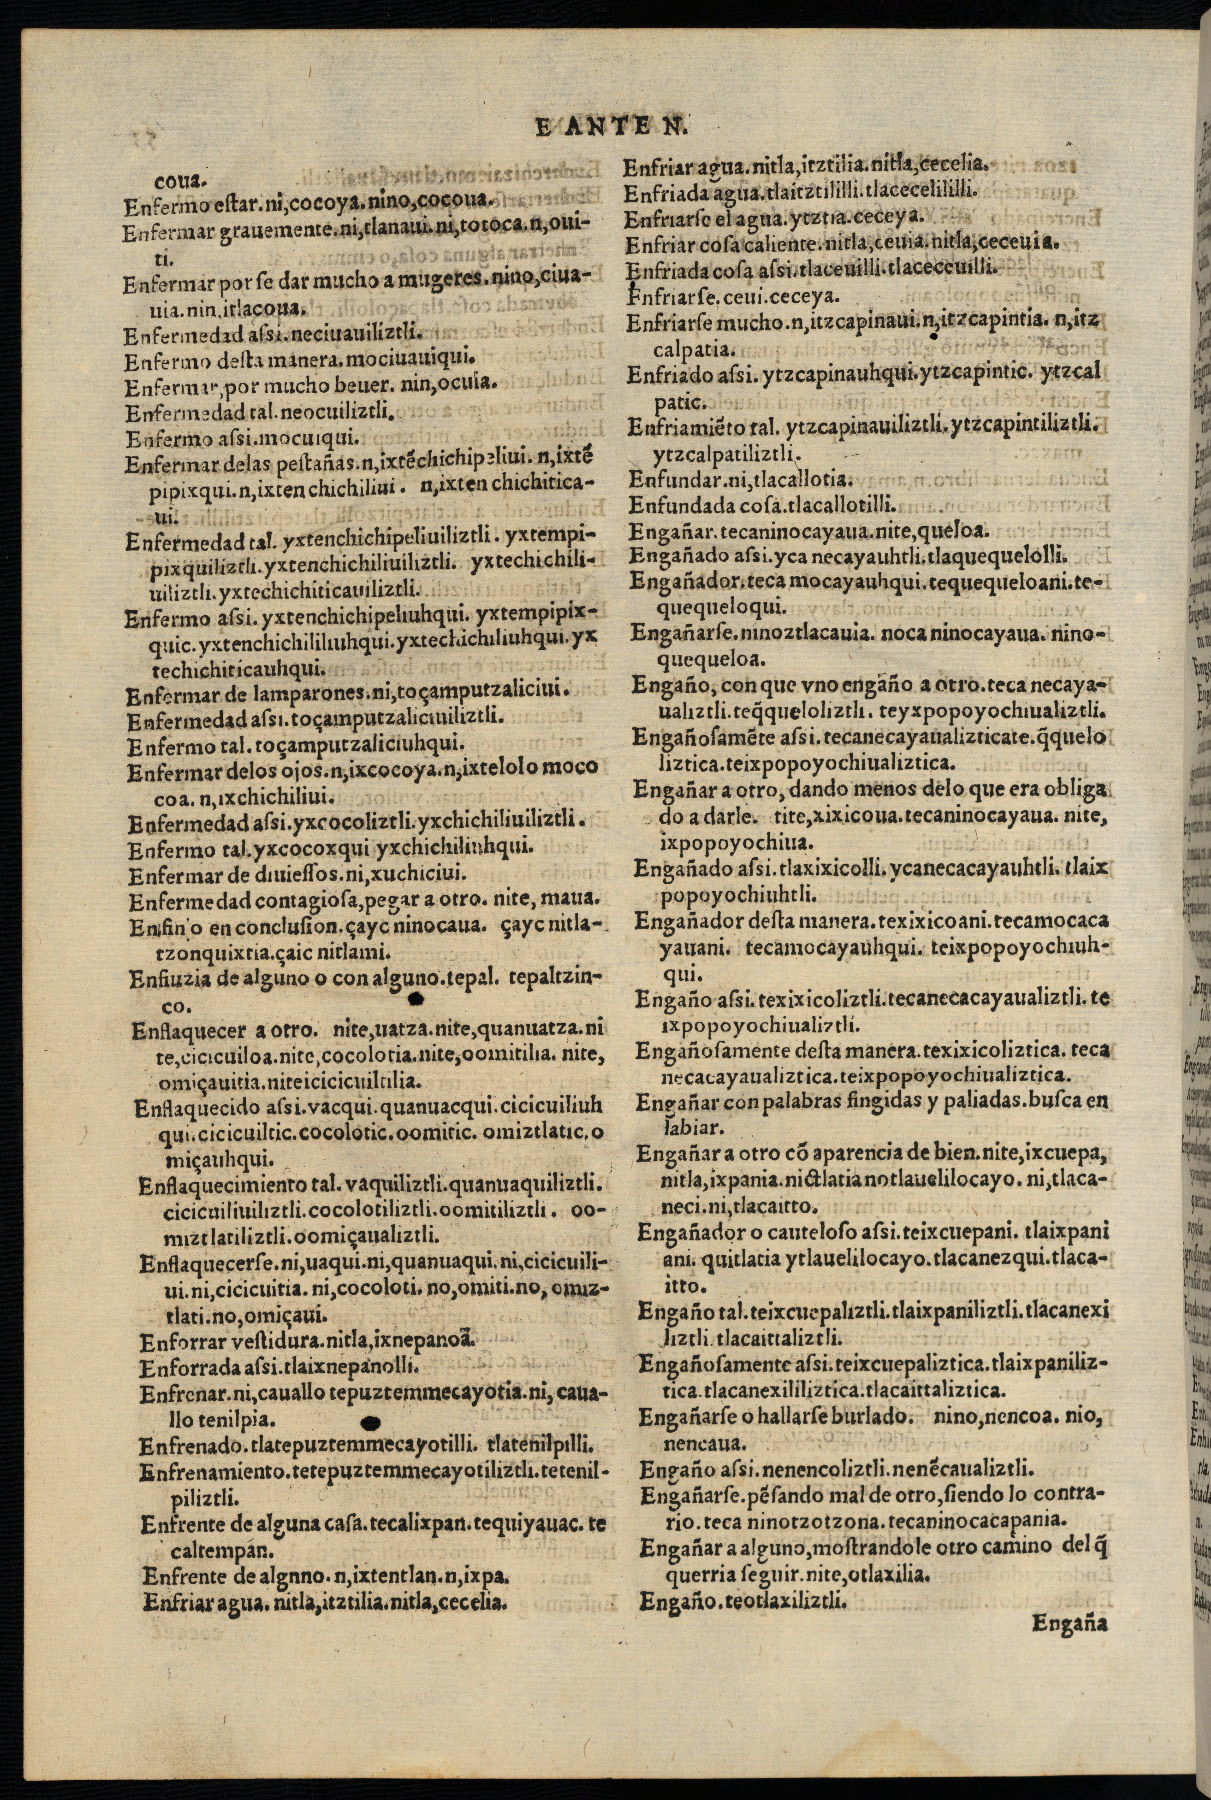 E ANTE N.
coua.
Enfermo eſtar.ni,cocoya.nino,cocoua.
Enfermar grauemente.ni,tlanaui.ni,totoca.n,oui-
ti.
Enfermar por ſe dar mucho a mugeres.nino,ciua-
uia.nin,itlacoua.
Enfermedad aſsi.neciuauiliztli.
Enfermo deſta manera.mociuauiqui.
Enfermar,por mucho beuer. nin,ocuia.
Enfermedad tal.neocuiliztli.
Enfermo aſsi.mocuiqui.
Enfermar delas peſtañas.n,ixtẽchichipeliui. n,ixtẽ
pipixqui.n,ixtenchichiliui. n,ixten chichitica-
ui.
Enfermedad tal. yxtenchichipeliuiliztli. yxtempi-
pixquiliztli.yxtenchichiliuiliztli. yxtechichili-
uiliztli.yxtechichiticauiliztli.
Enfermo aſsi. yxtenchichipeliuhqui. yxtempipix-
quic.yxtenchichililiuhqui.yxtechichiliuhqui.yx
techichiticauhqui.
Enfermar de lamparones.ni,toçamputzaliciui.
Enfermedad aſsi.toçamputzaliciuiliztli.
Enfermo tal.toçamputzaliciuhqui.
Enfermar delos ojos.n,ixcocoya.n,ixtelolo moco
coa.n,ixchichiliui.
Enfermedad aſsi.yxcocoliztli.yxchichiliuiliztli.
Enfermo tal.yxcocoxqui yxchichiliuhqui.
Enfermar de diuieſſos.ni,xuchiciui.
Enfermedad contagioſa,pegar a otro. nite, maua.
Enfin o en concluſion.çayc ninocaua. çayc nitla-
tzonquixtia.çaic nitlami.
Enfiuzia de alguno o con alguno.tepal. tepaltzin-
co.
Enflaquecer a otro. nite,uatza.nite,quanuatza.ni
te,cicicuiloa.nite,cocolotia.nite,oomitilia. nite,
omiçauitia.niteicicicuiltilia.
Enflaquecido aſsi.vacqui.quanuacqui.cicicuiliuh
qui.cicicuiltic.cocolotic.oomitic. omiztlatic.o
miçauhqui.
Enflaquecimiento tal.vaquiliztli.quanuaquiliztli.
cicicuiliuiliztli.cocolotiliztli.oomitiliztli. oo-
miztlatiliztli.oomiçaualiztli.
Enflaquecerſe.ni,uaqui.ni,quanuaqui.ni,cicicuili-
ui.ni,cicicuitia.ni,cocoloti.no,omiti.no,omiz-
tlati.no,omiçaui.
Enforrar veſtidura.nitla,ixnepanoã.
Enforrada aſsi.tlaixnepanolli.
Enfrenar.ni,cauallo tepuztemmecayotia.ni, caua-
llo tenilpia.
Enfrenado.tlatepuztemmecayotilli. tlatenilpilli.
Enfrenamiento.tetepuztemmecayotiliztli.tetenil-
piliztli.
Enfrente de alguna caſa.tecalixpan.tequiyauac. te
caltempan.
Enfrente de algnno.n,ixtentlan.n,ixpa.
Enfriar agua. nitla,itztilia.nitla,cecelia.
Enfriar agua.nitla,itztilia.nitla,cecelia.
Enfriada agua.tlaitztililli.tlacecelililli.
Enfriarſe el agua.ytztia.ceceya.
Enfriar coſa caliente.nitla,ceuia.nitla,ceceuia.
Enfriada coſa aſsi.tlaceuilli.tlaceceuilli.
Enfriarſe.ceui.ceceya.
Enfriarſe mucho.n,itzcapinaui.n,itzcapintia. n,itz
calpatia.
Enfriado aſsi.ytzcapinauhqui.ytzcapintic. ytzcal
patic.
Enfriamiẽto tal. ytzcapinauiliztli.ytzcapintiliztli.
ytzcalpatiliztli.
Enfundar.ni,tlacallotia.
Enfundada coſa.tlacallotilli.
Engañar.tecaninocayaua.nite,queloa.
Engañado aſsi.yca necayauhtli.tlaquequelolli.
Engañador.teca mocayauhqui.tequequeloani.te-
quequeloqui.
Engañarſe.ninoztlacauia. noca ninocayaua. nino-
quequeloa.
Engaño, con que vno engaño a otro.teca necaya-
ualiztli.teq̃queloliztli. teyxpopoyochiualiztli.
Engañoſamẽte aſsi.tecanecayaualizticate.q̃quelo
liztica.teixpopoyochiualiztica.
Engañar a otro, dando menos delo que era obliga
do a darle. tite,xixicoua.tecaninocayaua. nite,
ixpopoyochiua.
Engañado aſsi.tlaxixicolli.ycanecacayauhtli.tlaix
popoyochiuhtli.
Engañador deſta manera.texixicoani.tecamocaca
yauani. tecamocayauhqui. teixpopoyochiuh-
qui.
Engaño aſsi.texixicoliztli.tecanecacayaualiztli.te
ixpopoyochiualiztli.
Engañoſamente deſta manera.texixicoliztica. teca
necacayaualiztica.teixpopoyochiualiztica.
Engañar con palabras fingidas y paliadas.buſca en
labiar.
Engañar a otro cõ aparencia de bien.nite,ixcuepa,
nitla,ixpania.nictlatia notlauelilocayo. ni,tlaca-
neci.ni,tlacaitto.
Engañador o cauteloſo aſsi.teixcuepani. tlaixpani
ani. quitlatia ytlauelilocayo.tlacanezqui.tlaca-
itto.
Engaño tal.teixcuepaliztli.tlaixpaniliztli.tlacanexi
liztli.tlacaittaliztli.
Engañoſamente aſsi.teixcuepaliztica.tlaixpaniliz-
tica.tlacanexililiztica.tlacaittaliztica.
Engañarſe o hallarſe burlado. nino,nencoa. nio,
nencaua.
Engaño aſsi.nenencoliztli.nenẽcaualiztli.
Engañarſe.pẽſando mal de otro,ſiendo lo contra-
rio.teca ninotzotzona.tecaninocacapania.
Engañar a alguno,moſtrandole otro camino del q̃
querria ſeguir.nite,otlaxilia.
Engaño.teotlaxiliztli.
Engaña